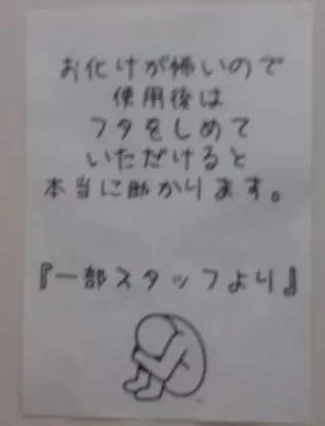 お化けが怖いので
使用後は
フタをしめて
いただけると
本当に助かります。
『一部スタッフより』